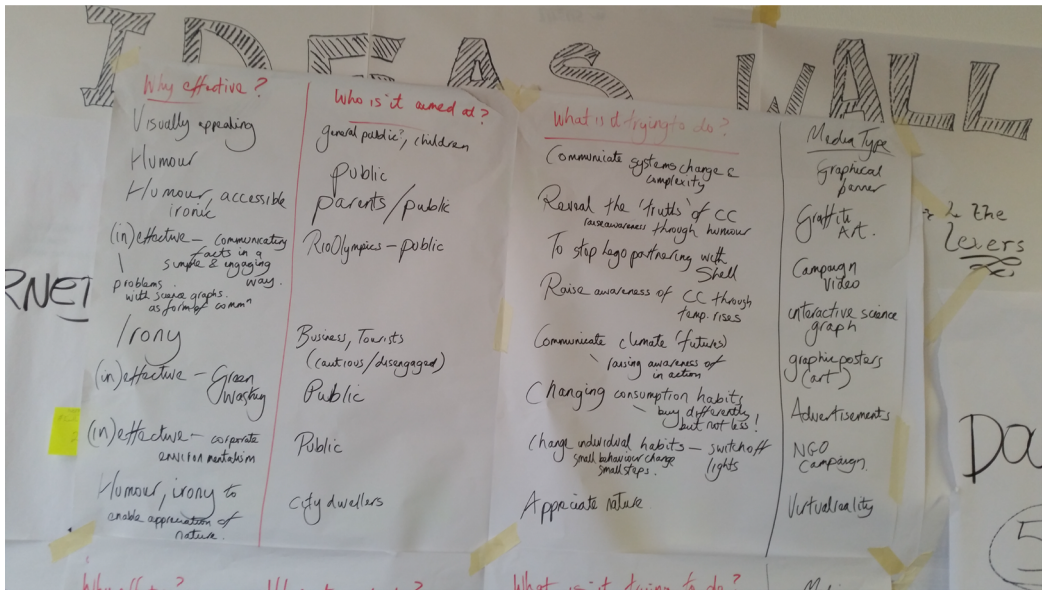 IDEAS WALL
Why effective?
Visually appealing
Humour
Humour, accessible
ironic
(in)effective – communicating
facts in a
simple & engaging
way.
problems
with science graphs.
as form of commⁿ
Irony
(in)effective – Green
washing
(in)effective – corporate
environmentalism
Humour, irony to
enable appreciation of
nature.
Who is it aimed at?
general public?, children
Public
parents/public
Rio Olympics – public
Business, Tourists
(cautious/disengaged)
Public
Public
City dwellers
What is it trying to do?
Communicate systems change &
complexity
Reveal the 'truths' of CC
raise awareness through humour
To stop Lego partnering with
Shell
Raise awareness of CC through
temp. rises
Communicate climate 'futures'
raising awareness of
in action
Changing consumption habits
– buy differently
but not less!
Change individual habits – switch off
lights
small behaviour change
small steps.
Appreciate nature
Media Type
Graphical
banner
Graffiti
Art.
Campaign
video
interactive science
graph
graphic posters
(art)
Advertisements
NGO
Campaign.
Virtual reality
the
levers
RNET
DOC
5
What is it trying to do?